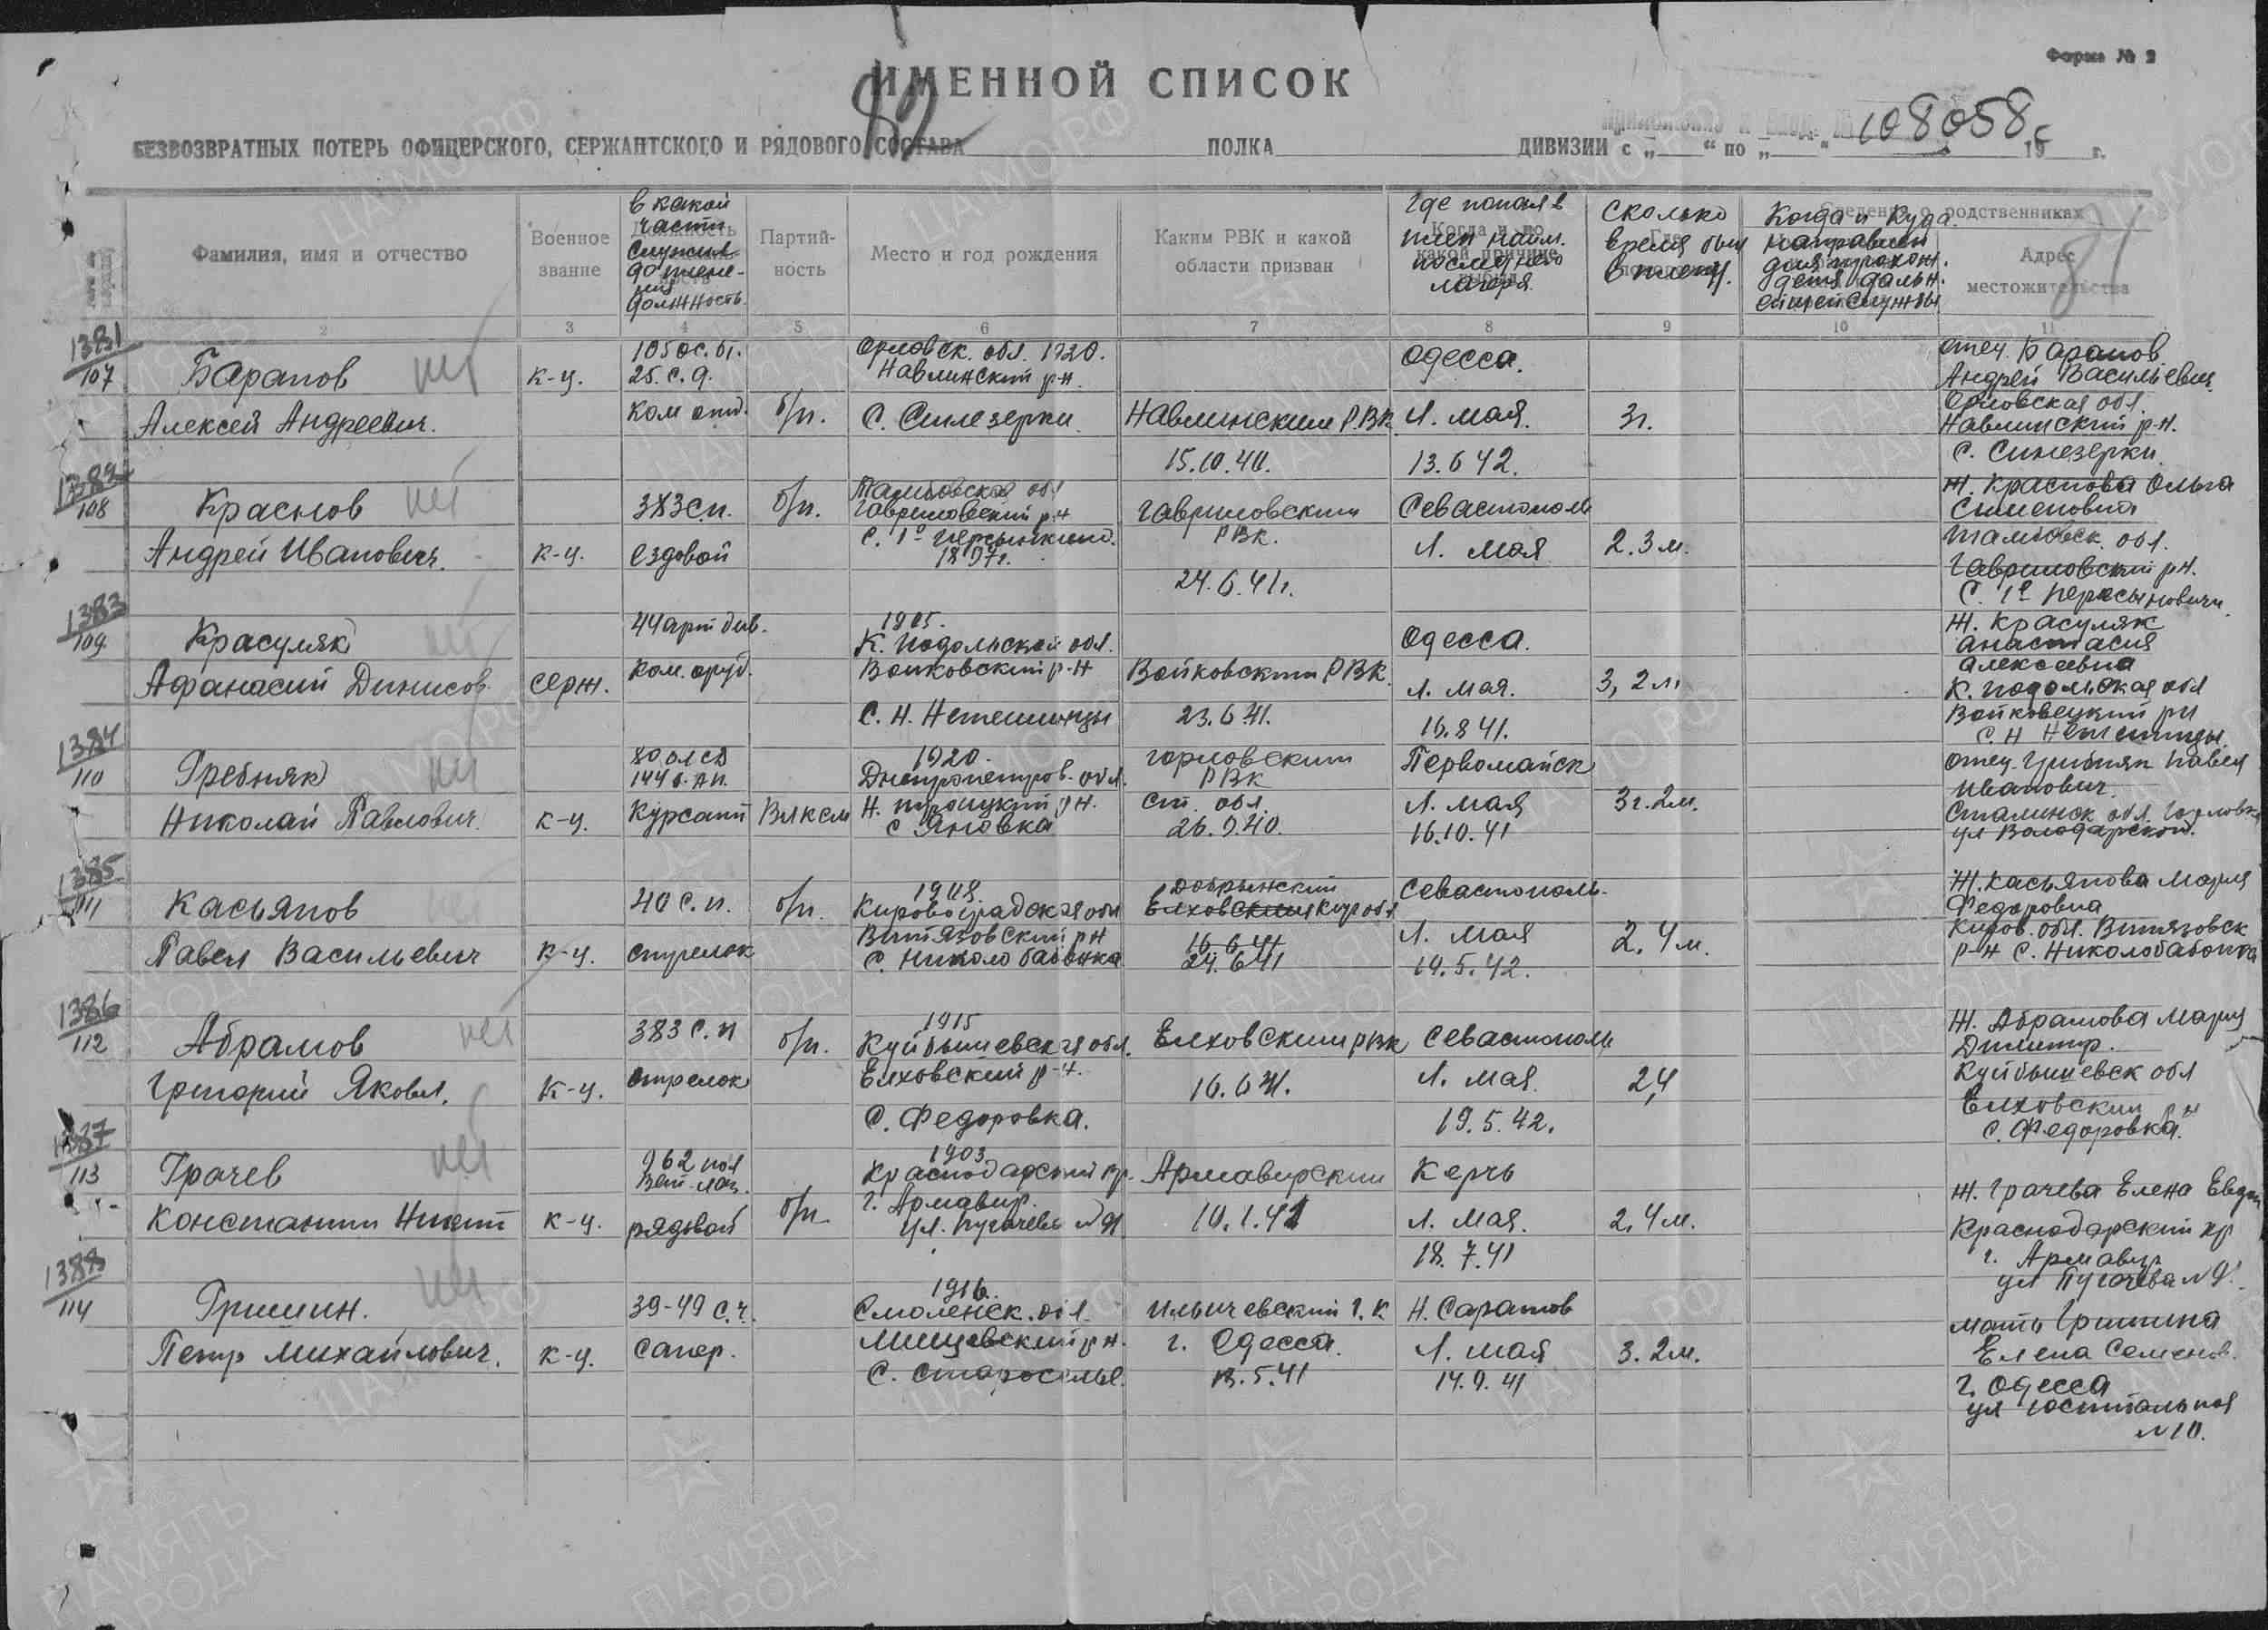 Форма № 2
ИМЕННОЙ СПИСОК
82
108058с
БЕЗВОЗВРАТНЫХ ПОТЕРЬ ОФИЦЕРСКОГО, СЕРЖАНТСКОГО И РЯДОВОГО СОСТАВА ПОЛКА ДИВИЗИИ с „ “ по „ “ 19 г.
81
Фамилия, имя и отчество
Военное звание
в какой части служил до плене-ния должность
Партий-ность
Место и год рождения
Каким РВК и какой области призван
Где попал в плен наим. последнего лагеря
Сколько время был в плену
Когда и куда направлен
Сведения о родственниках
Адрес местожительства
2 3 4 5 6 7 8 9 10 11
1381
107
Баранов нет
Алексей Андреевич.
к-ц.
25. с. д.
Ком отд.
б/п.
Орловск. обл. 1920.
Навлинский р-н
С. Синезерки
Навлинский РВК
15.10.40.
Одесса.
Л. мая.
13.6 42.
3г.
отец Баранов
Андрей Васильевич
Орловская обл.
Навлинский р-н.
С. Синезерки
108
Краснов нет
Андрей Иванович.
к-ц.
383 с.п.
ездовой
б/п.
Тамбовская обл
Гавриловский р-н
1897г.
Гавриловским
РВК.
24.6.41г.
Севастополь
Л. мая
2.3м.
Ж. Краснова Ольга
Семеновна
Тамбовск. обл.
Гавриловский р-н.
1383
109
Красуляк
Афанасий Динисов.
серж.
44 арт див.
Ком. оруд.
1905.
К. Подольской обл.
Войковский р-н
Войковским РВК
23.6 41.
Одесса.
Л. мая.
16.8 41.
Ж. Красуляк
анастасия
алексеевна
К. Подольская обл
1384
110
Гребняк нет
Николай Павлович.
к-ц.
144 з. ап.
Курсант
Влксм
1920.
Днепропетров. обл.
с Яновка
Горловским
РВК
Ст. обл.
26.9.40.
Первомайск
Л. мая
16.10.41
3г. 2м.
Иванович.
Сталинск обл. Горловка
ул Володарской.
1385
111
Касьянов нет
Павел Васильевич
к-ц.
40 с.п.
стрелок
б/п.
1908.
Кировоградская обл
Витязовский р-н
Добрынский
16 6 41
24.6 41
Севастополь.
Л. мая
19.5.42.
2.4м.
Ж. Касьянова Мария
Федоровна
Киров. обл. Витязовск
1386
112
Абрамов нет
Григорий Яковл.
к-ц.
383 с.п
стрелок
б/п.
1915
Куйбышевская обл.
Елховский р-н.
С. Федоровка.
Елховским рвк
16.6 41.
Севастополь
Л. мая.
19.5.42.
2,4
Ж. Абрамова Мария
Димитр.
Куйбышевск обл
Елховский р н
С. Федоровка.
1387
113
Грачев нет
Константин Никит
к-ц.
962 пол
Вет лаз.
рядовой
б/п
1903
Краснодарский кр.
г. Армавир.
Армавирским
10.1.42
Керчь
Л. мая.
18.7.41
2,4м.
Ж. Грачева Елена Евдок
Краснодарский кр
г. Армавир
ул Пугачева
1388
114
Гришин. нет
Петр Михайлович.
к-ц.
39-49 с.ч.
Сапер.
1916.
Смоленск. обл.
Ильичевский г.к
г. Одесса.
Н. Саратов
Л. мая
14.9.41
3.2м.
мать Гришина
Елена Семенов.
г. Одесса
ул Госпитальная
№10.
ПАМЯТЬ НАРОДА
ЦАМО РФ